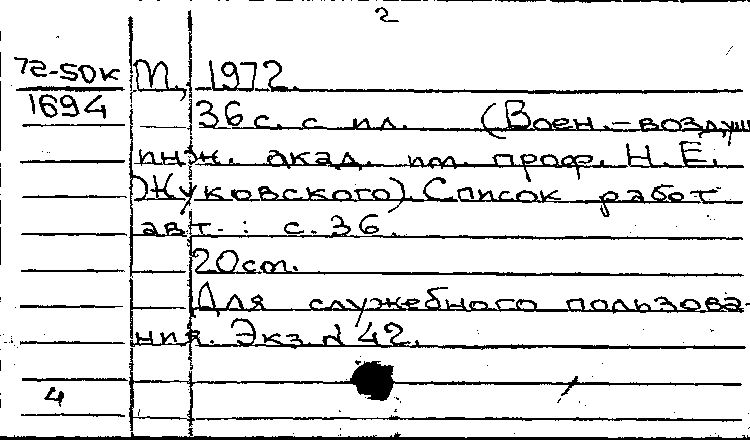 2
72-50к М., 1972.
1694 36 с. с ил. (Воен.-воздуш
инж. акад. им. проф. Н. Е.
Жуковского). Список работ
авт.: с. 36.
20 см.
Для служебного пользова-
ния. Экз. № 42.
4